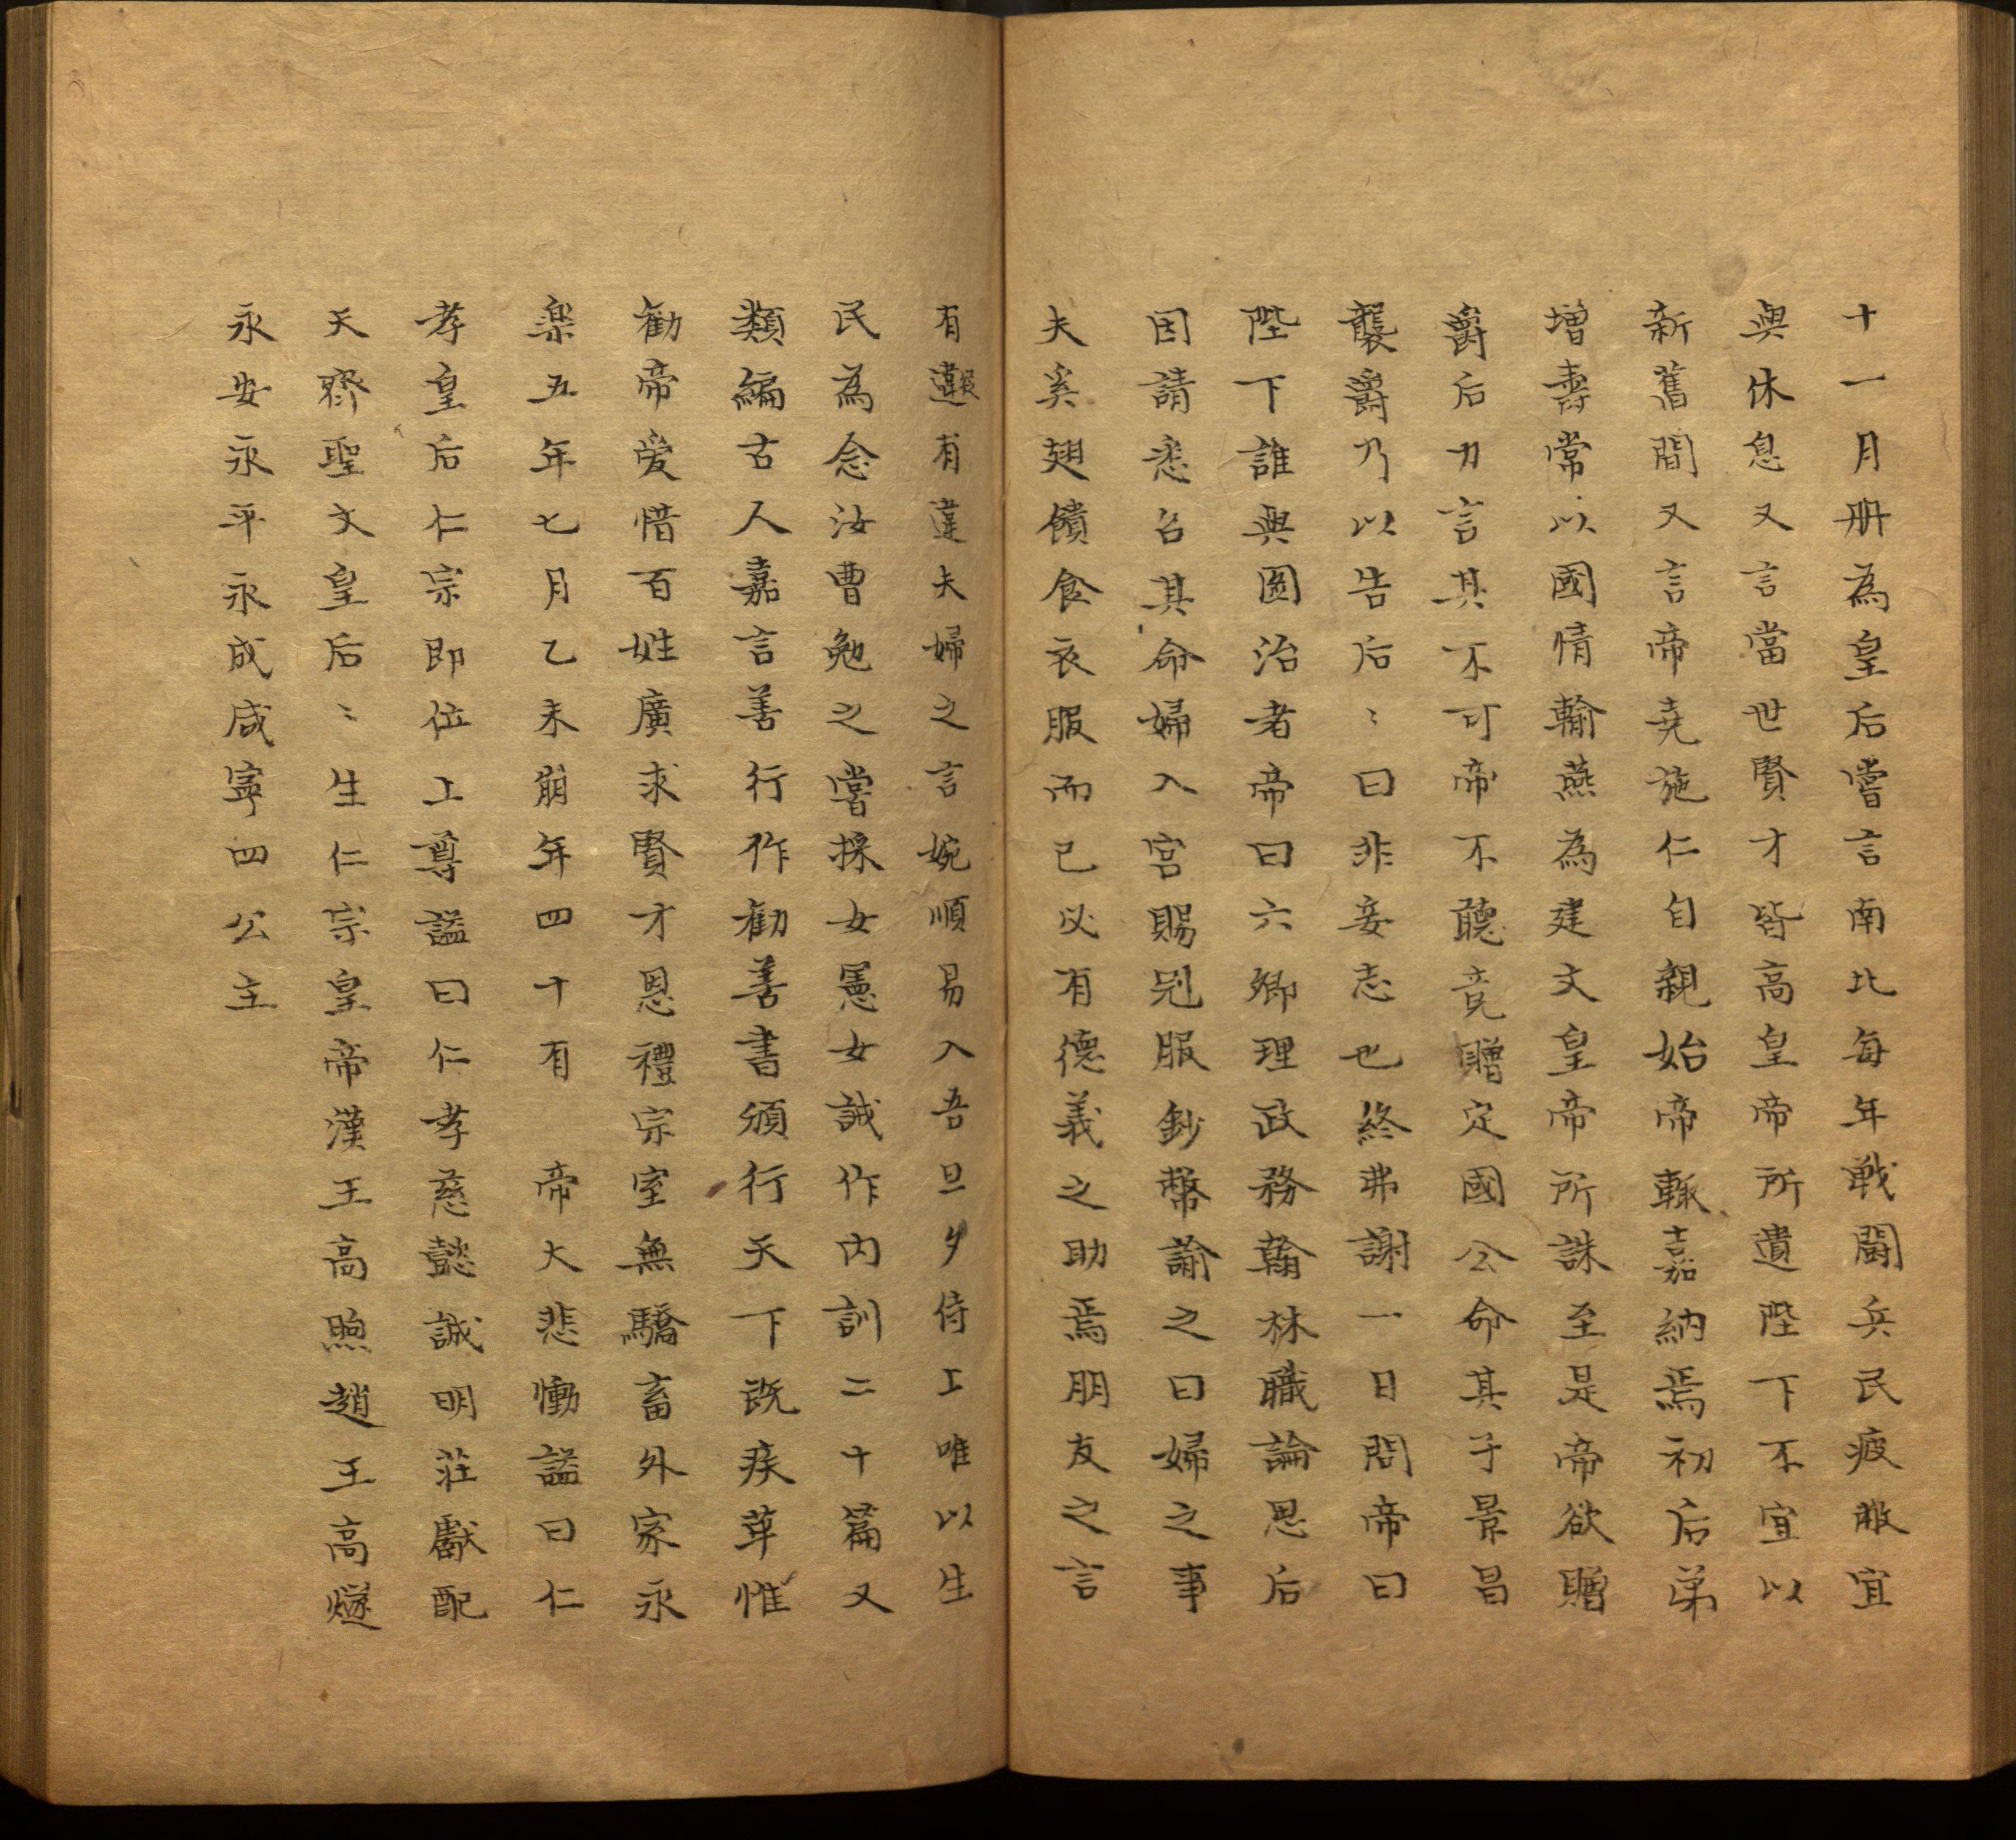 十一月册為皇后嘗言南北每年戦鬪兵民疲敝宜
與休息又言當世賢才皆高皇帝所遺陛下不宜以
新舊間又言帝堯施仁自親始帝輒嘉納焉初后弟
增壽常以國情輸燕為建文皇帝所誅至是帝欲贈
爵后力言其不可帝不聽竟贈定國公命其子景昌
襲爵乃以告后〻曰非妾志也終弗謝一日問帝曰
陛下誰與圖治者帝曰六卿理政務翰林職論思后
因請悉召其命婦入宮賜冠服鈔幣諭之曰婦之事
夫奚翅饋食衣服而已必有德義之助焉朋友之言
有違有違夫婦之言婉順易入吾旦夕侍上唯以生
民為念汝曹勉之嘗採女憲女誡作內訓二十篇又
類編古人嘉言善行作勸善書頒行天下既疾革惟
勸帝爱惜百姓廣求賢才恩禮宗室無驕畜外家永
楽五年七月乙未崩年四十有 帝大悲慟謚曰仁
孝皇后仁宗即位上尊謚曰仁孝慈懿誠明莊獻配
天齊聖文皇后〻生仁宗皇帝漢王高煦趙王高燧
永安永平永成咸寧四公主